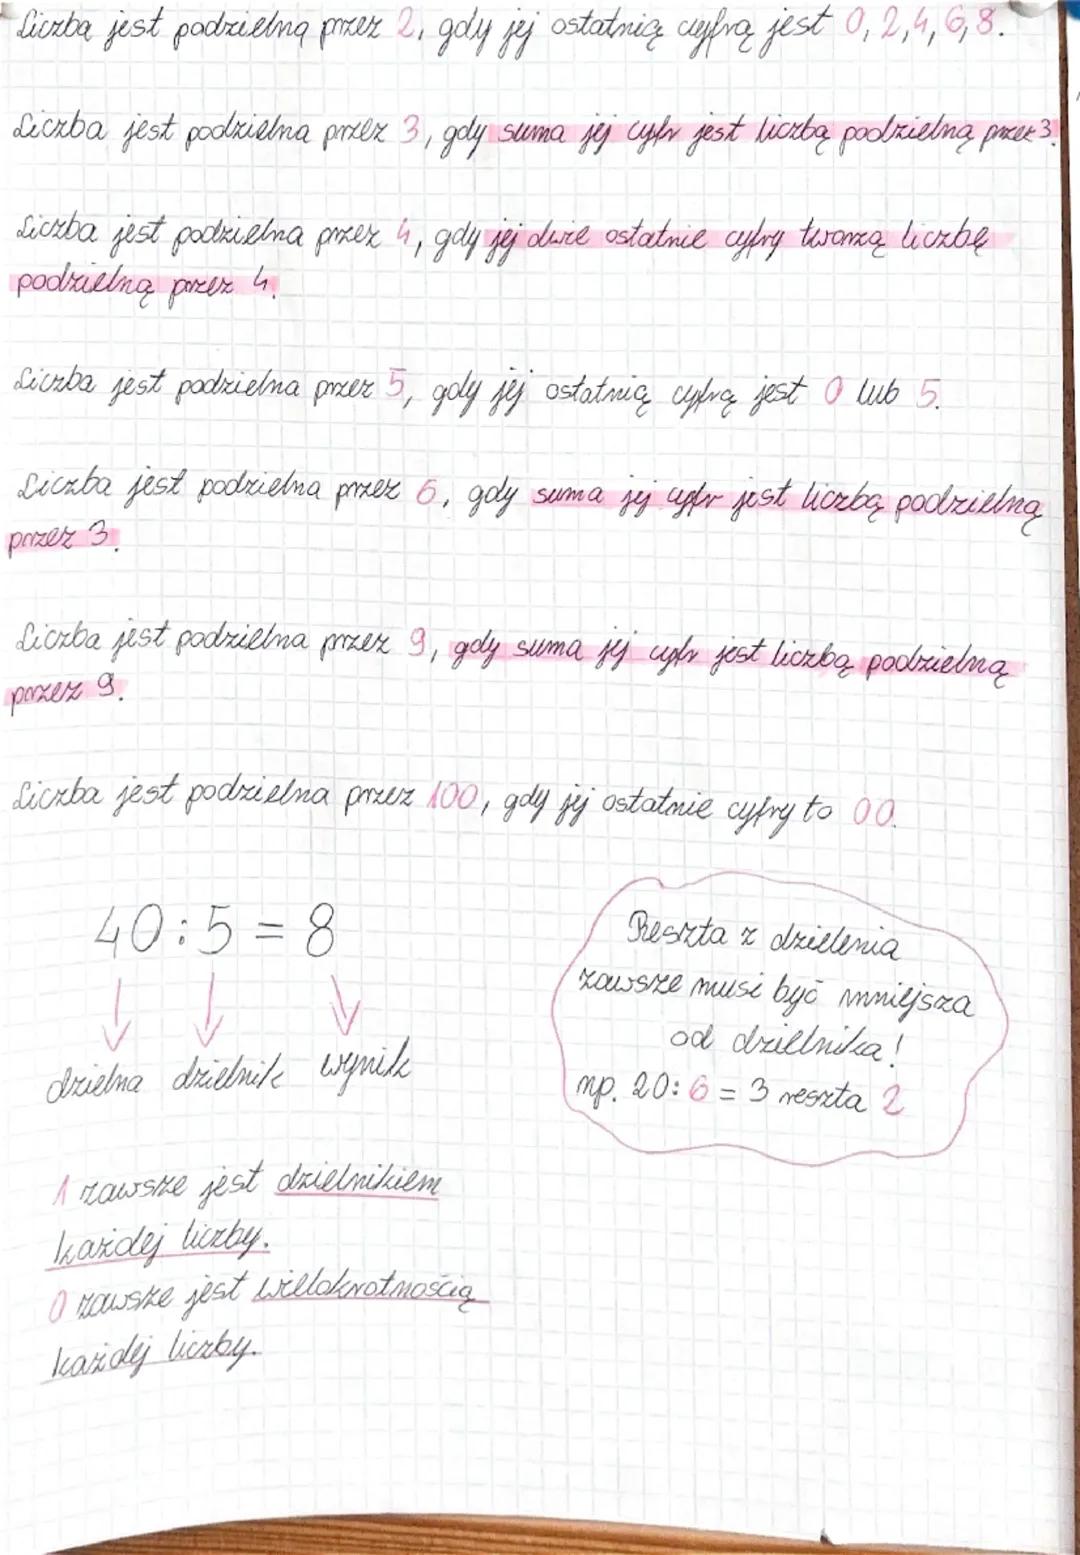 Liczbą jest podzielną przez 2, gdy jej ostatnią cyfrą jest 0, 2, 4, 6, 8.
Liczba jest podzielna przez 3, gdy suma jej cyfr jest liczbą podzielną przez 3.
Liczba jest podzielna przez 4, gdy jej dwie ostatnie cyfry tworzą liczbę
podzielną przez 4.
Liczba jest podzielna przez 5, gdy jej ostatnią cyfrą jest 0 lub 5.
Liczba jest podzielna przez 6, gdy suma jej cyfr jest liczbą podzielną
przez 3.
Liczba jest podzielna przez 9, gdy suma jej cyfr jest liczbą podzielną
przez 9.
Liczba jest podzielna przez 100, gdy jej ostatnie cyfry to 00.
40 : 5 = 8
dzielna dzielnik wynik
Reszta z dzielenia
zawsze musi być mniejsza
od dzielnika!
np. 20 : 6 = 3 reszta 2
1 zawsze jest dzielnikiem
każdej liczby.
0 zawsze jest wielokrotnością
każdej liczby.